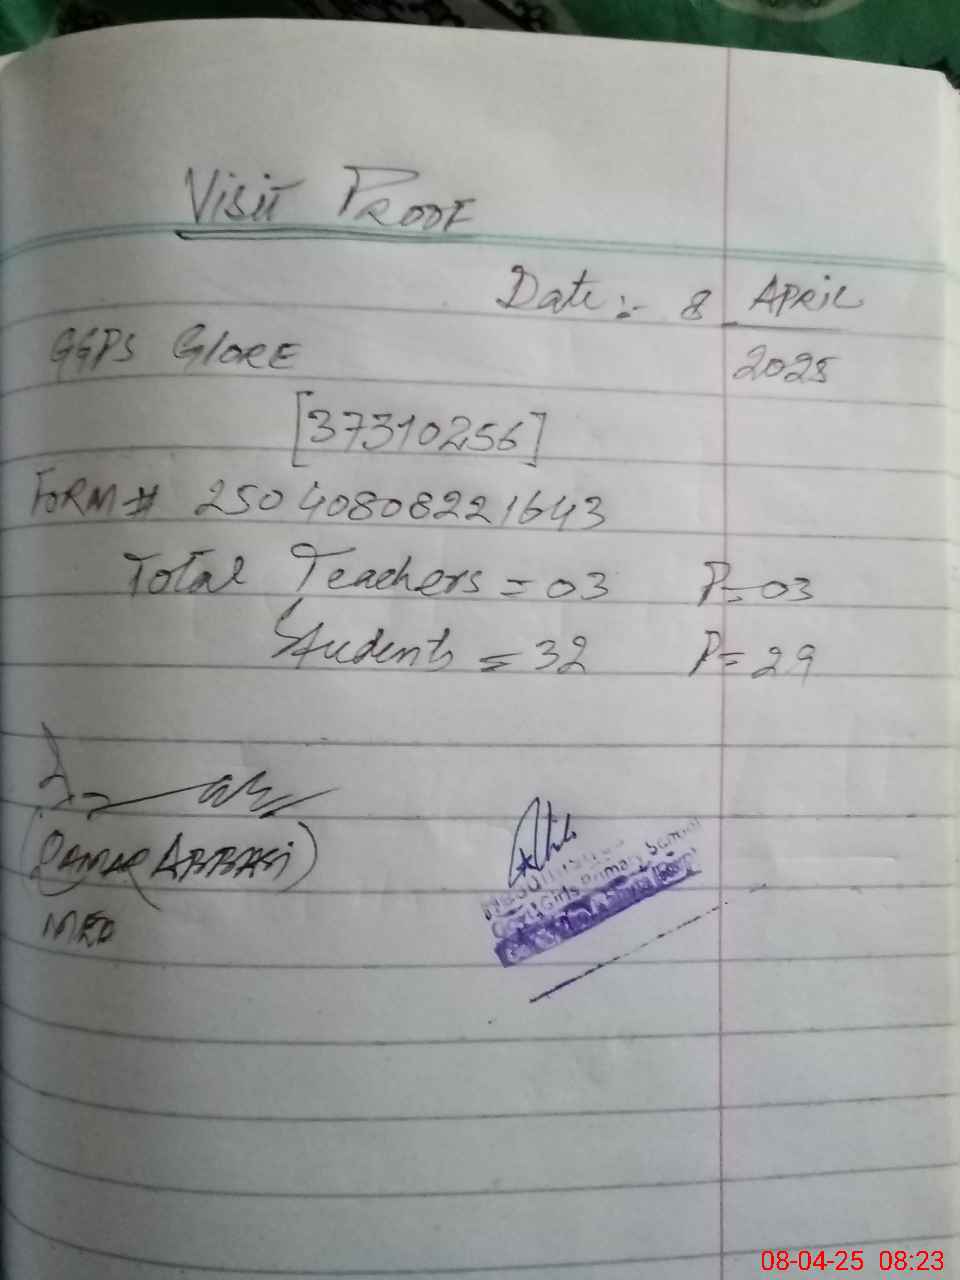 Visit PROOF
Date:- 8 APRIL
2025
GGPS GlORE
[37310256]
FORM# 25040808221643
Total Teachers = 03 P=03
Students = 32 P=29
(QAMAR ABBASI)
MEO
Govt Girls Primary School
08-04-25 08:23